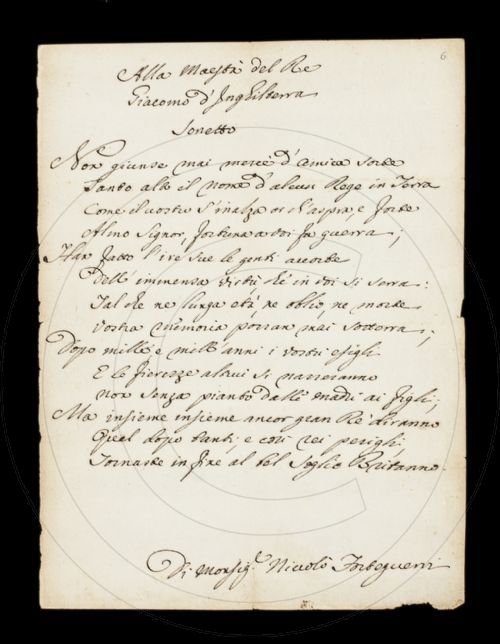 6
Alla Maestà del Re
Giacomo d'Inghilterra
Sonetto
Non giunse mai mercè d'amica sorte
Tanto alto il nome d'alcun Rege in Terra
Come il vostro s'inalza or ch'aspra, e forte
Almo Signor, fortuna a voi fa guerra;
Han fatto l'ire sue le genti accorte
Dell' immensa virtù, ch'è in voi si serra:
Tal che ne lunga età, ne oblio, ne morte
Vostra memoria porran mai sotterra;
Dopo mille, e mill'anni i vostri esigli
E le fierezze altrui si narreranno
non senza pianto dalle madri ai figli;
Ma insieme insieme ancor gran Re diranno
Qual dopo tanti, e così rei perigli
Tornaste in fine al bel soglio Britanno.
Di Monsig.r Niccolò Forteguerri